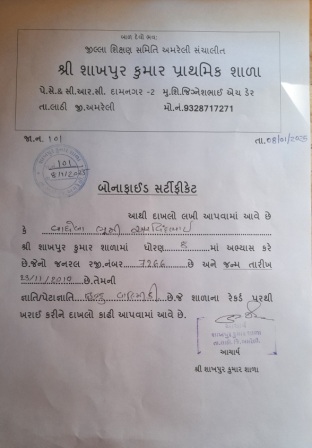 જીલ્લા શિક્ષણ સમિતિ અમરેલી સંચાલીત
શ્રી શાખપુર કુમાર પ્રાથમિક શાળા
પે.સે.& સી.આર.સી. દામનગર -2 મુ.શિ.જિગ્નેશભાઈ એચ ડેર
તા.લાઠી જી.અમરેલી મો.નં.9328717271
જા.ન. ૧૦૧ તા.
૧૦૧
બોનાફાઈડ સર્ટીફીકેટ
આથી દાખલો લખી આપવામાં આવે છે
કે
શ્રી શાખપુર કુમાર શાળામાં ધોરણ 8 માં અભ્યાસ કરે
છે.જેનો જનરલ રજી.નંબર 7266 છે અને જન્મ તારીખ
23/11/2010 છે.તેમની
જ્ઞાતિ/પેટાજ્ઞાતિ છે.જે શાળાના રેકર્ડ પરથી
ખરાઈ કરીને દાખલો કાઢી આપવામાં આવે છે.
આચાર્ય
શાખપુર કુમાર શાળા
આચાર્ય
શ્રી શાખપુર કુમાર શાળા